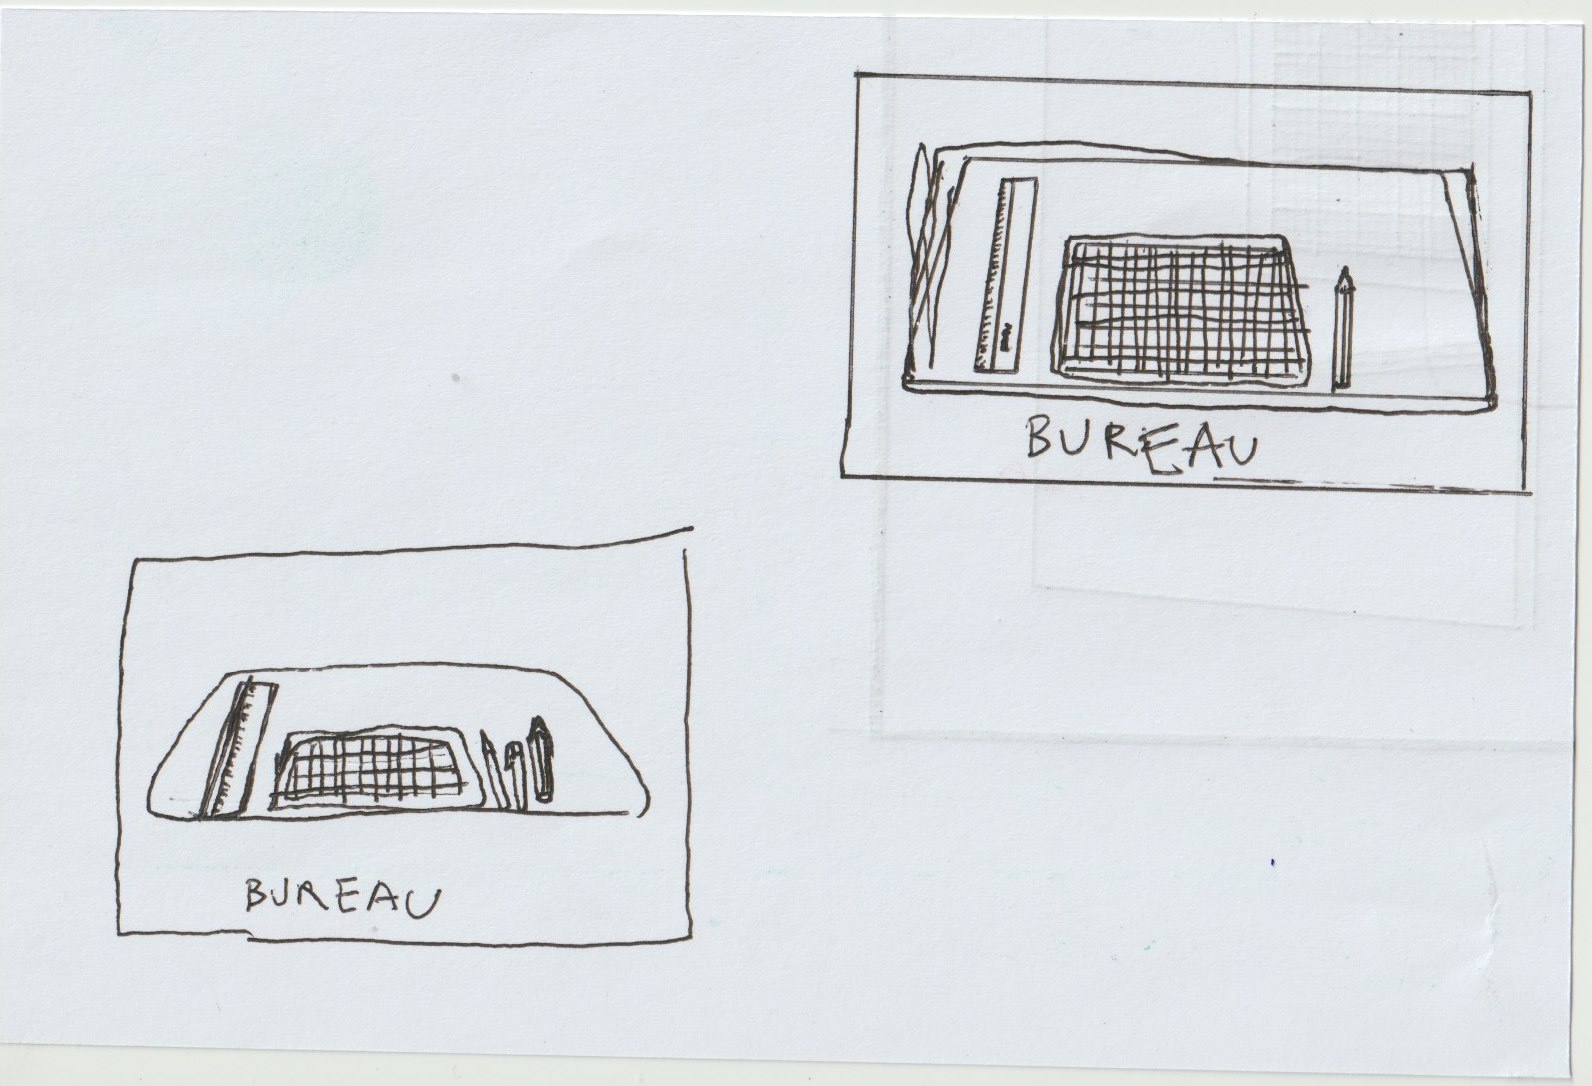 BUREAU
BUREAU